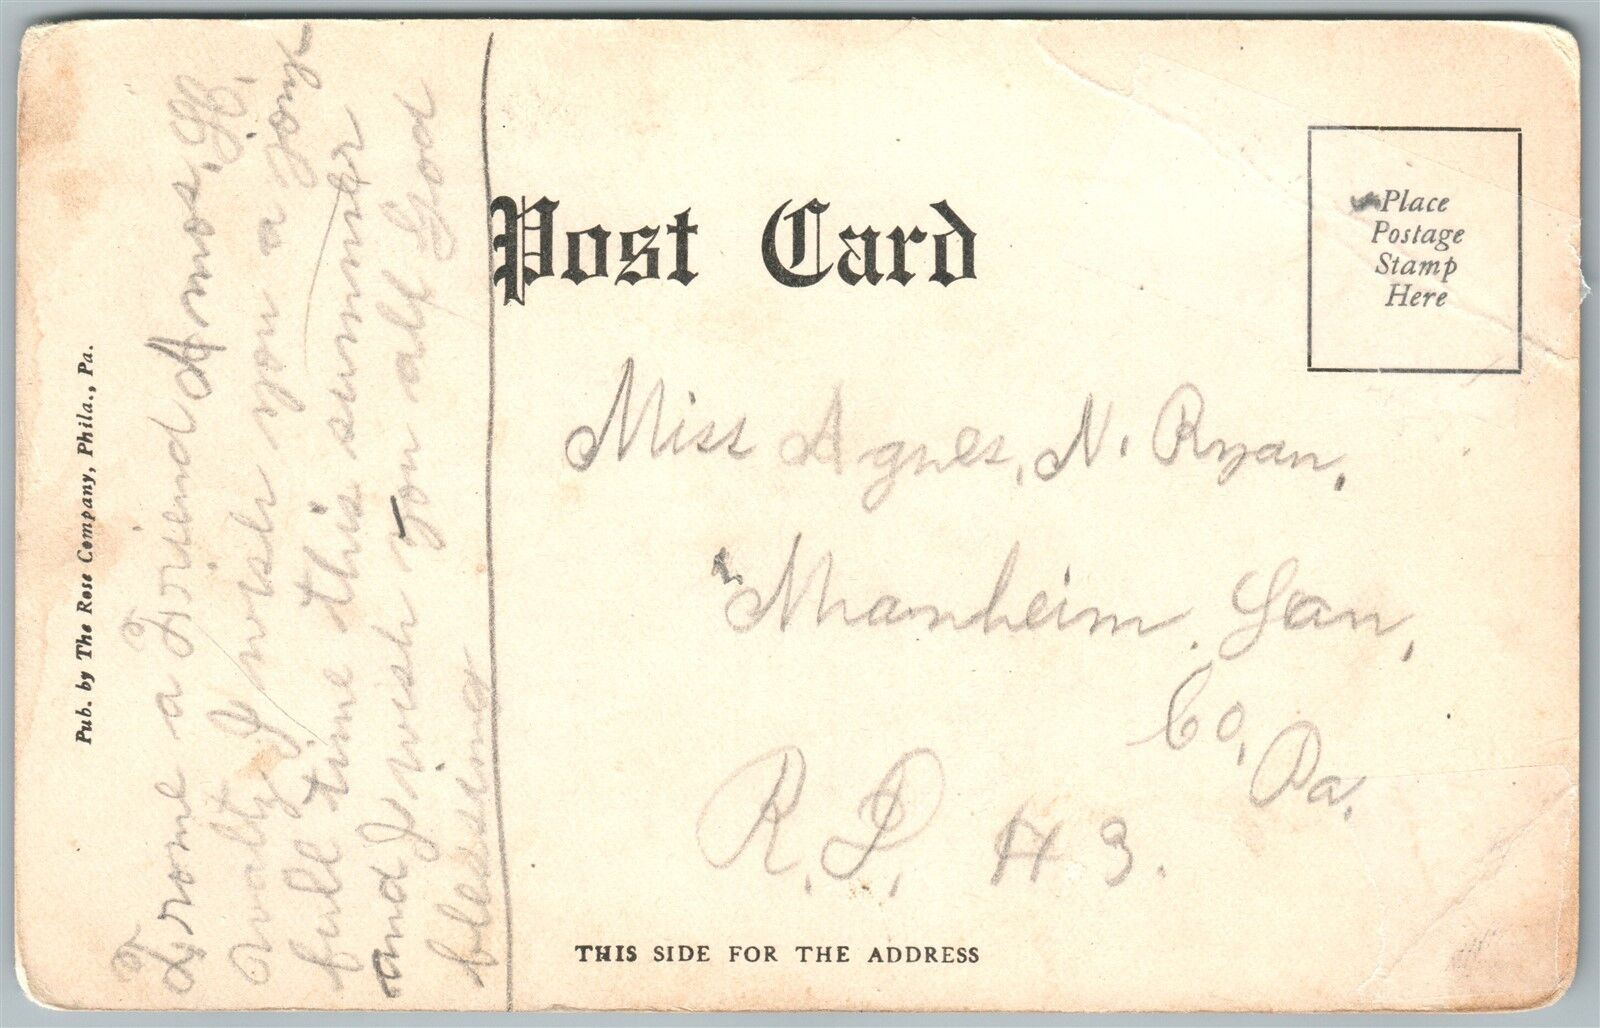 Pub. by The Rose Company, Phila., Pa.
Frome a Friend Amos, H,
I wish you a Joiy
full time this summer
and I wish you all God
blessing
Post Card
Place
Postage
Stamp
Here
Miss Agnes, N. Ryan,
Manheim. Lan,
Co, Pa,
R. D, # 3.
THIS SIDE FOR THE ADDRESS